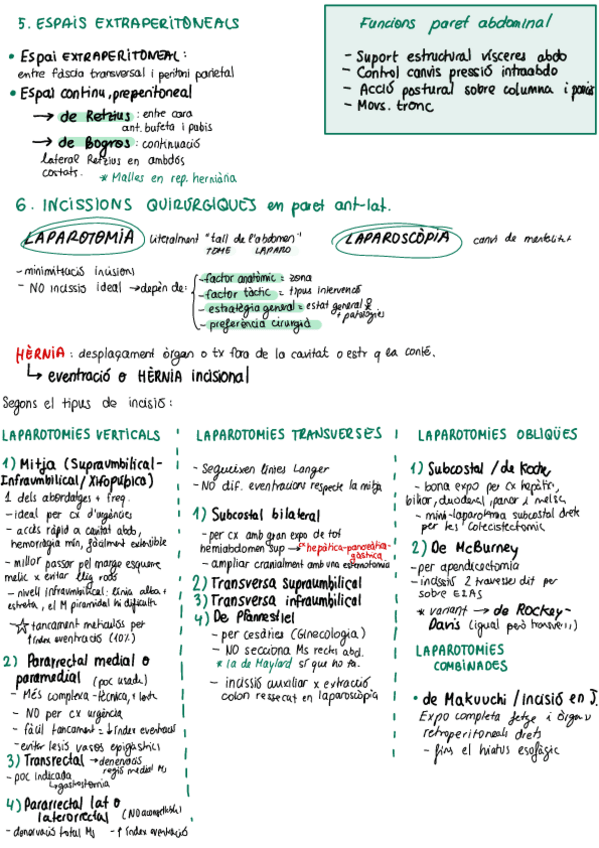 5. ESPAIS EXTRAPERITONEALS
• Espai EXTRAPERITONEAL:
entre fàscia transversal i peritoni parietal
• Espai continu, preperitoneal
→ de Retzius: entre cara
ant. bufeta i pubis
→ de Bogros: continuació
lateral Retzius en ambdós
costats.
* Malles en rep. herniària
Funcions paret abdominal
- Suport estructural vísceres abdo
- Control canvis pressió intraabdo
- Acció postural sobre columna i
- Movs. tronc
6. INCISSIONS QUIRÚRGIQUES en paret ant-lat.
LAPAROTOMIA literalment "tall de l'abdomen"
TOME LAPARO
LAPAROSCÒPIA canvi de mentalitat
- minimització incisions
- NO incissió ideal → depèn de:
- factor anatòmic = zona
- factor tàctic = tipus intervenció
- estratègia general = estat general
+ patologies
- preferència cirurgià
HÈRNIA: desplaçament òrgan o tx fora de la cavitat o estr q ea conté.
↳ eventració o HÈRNIA incisional
Segons el tipus de incisió:
LAPAROTOMIES VERTICALS
1) Mitja (Supraumbilical-
Infraumbilical/Xifopúbica)
1 dels abordatges + freq.
- ideal per cx d'urgències
- accés ràpid a cavitat abd,
hemorràgia mín, fàcilment extensible
- millor passar pel marge esquerre
melic x evitar llig rodó
- nivell infraumbilical: línia alba +
estreta, el M piramidal ho dificulta
☆ tancament meticulós per
↑ índex eventració (10%)
2) Pararrectal medial o
paramedial (poc usada)
- Més complexa-tècnica, + lenta
- NO per cx urgència
- fàcil tancament = ↓ índex eventració
- evitar lesió vasos epigàstrics
3) Transrectal → denervació
regió medial Ms
- poc indicada
↳ gastrostomia
4) Pararrectal lat o
laterorrectal (NO aconsellable)
- denervació total Ms - ↑ índex eventració
LAPAROTOMIES TRANSVERSES
- Segueixen línies Langer
- NO dif. eventracions respecte la mitja
1) Subcostal bilateral
- per cx amb gran expo de tot
hemiabdomen sup → cx hepàtica-pancreàtica-
gàstrica
- ampliar cranialment amb una esternotomia
2) Transversa supraumbilical
3) Transversa infraumbilical
4) De Pfannestiel
- per cesàries (Ginecologia)
- NO secciona Ms rectes abd.
* la de Maylard sí que ho fa.
- incissió auxiliar x extracció
colon ressecat en laparoscòpia
LAPAROTOMIES OBLIQÜES
1) Subcostal / de Koche
- bona expo per cx hepàtic,
biliar, duodenal, pancr i melsa
- mini-laparotomia subcostal dreta
per les colecistectomies
2) De McBurney
- per apendicectomia
- incissió 2 traveses dit per
sobre EIAS
* variant → de Rockey-
Davis (igual però transvers)
LAPAROTOMIES
COMBINADES
• de Makuuchi / incisió en J.
Expo completa fetge i òrgans
retroperitoneals drets
- fins el hiatus esofàgic